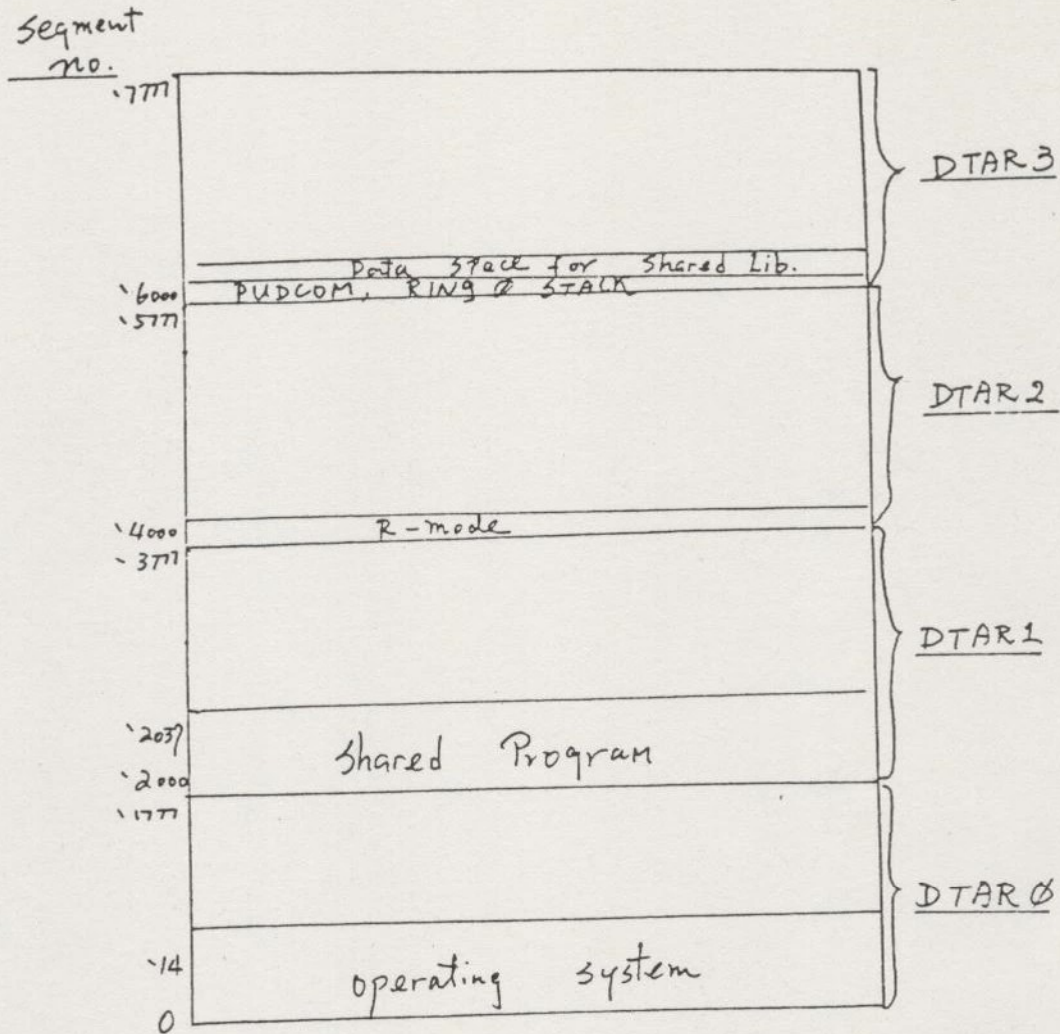 segment
no.
'7777
DTAR 3
Data Space for Shared Lib.
'6000 PUDCOM, RING Ø STACK
'5777
DTAR 2
'4000 R-mode
'3777
DTAR 1
'2037
Shared Program
'2000
'1777
DTAR Ø
'14
operating system
0